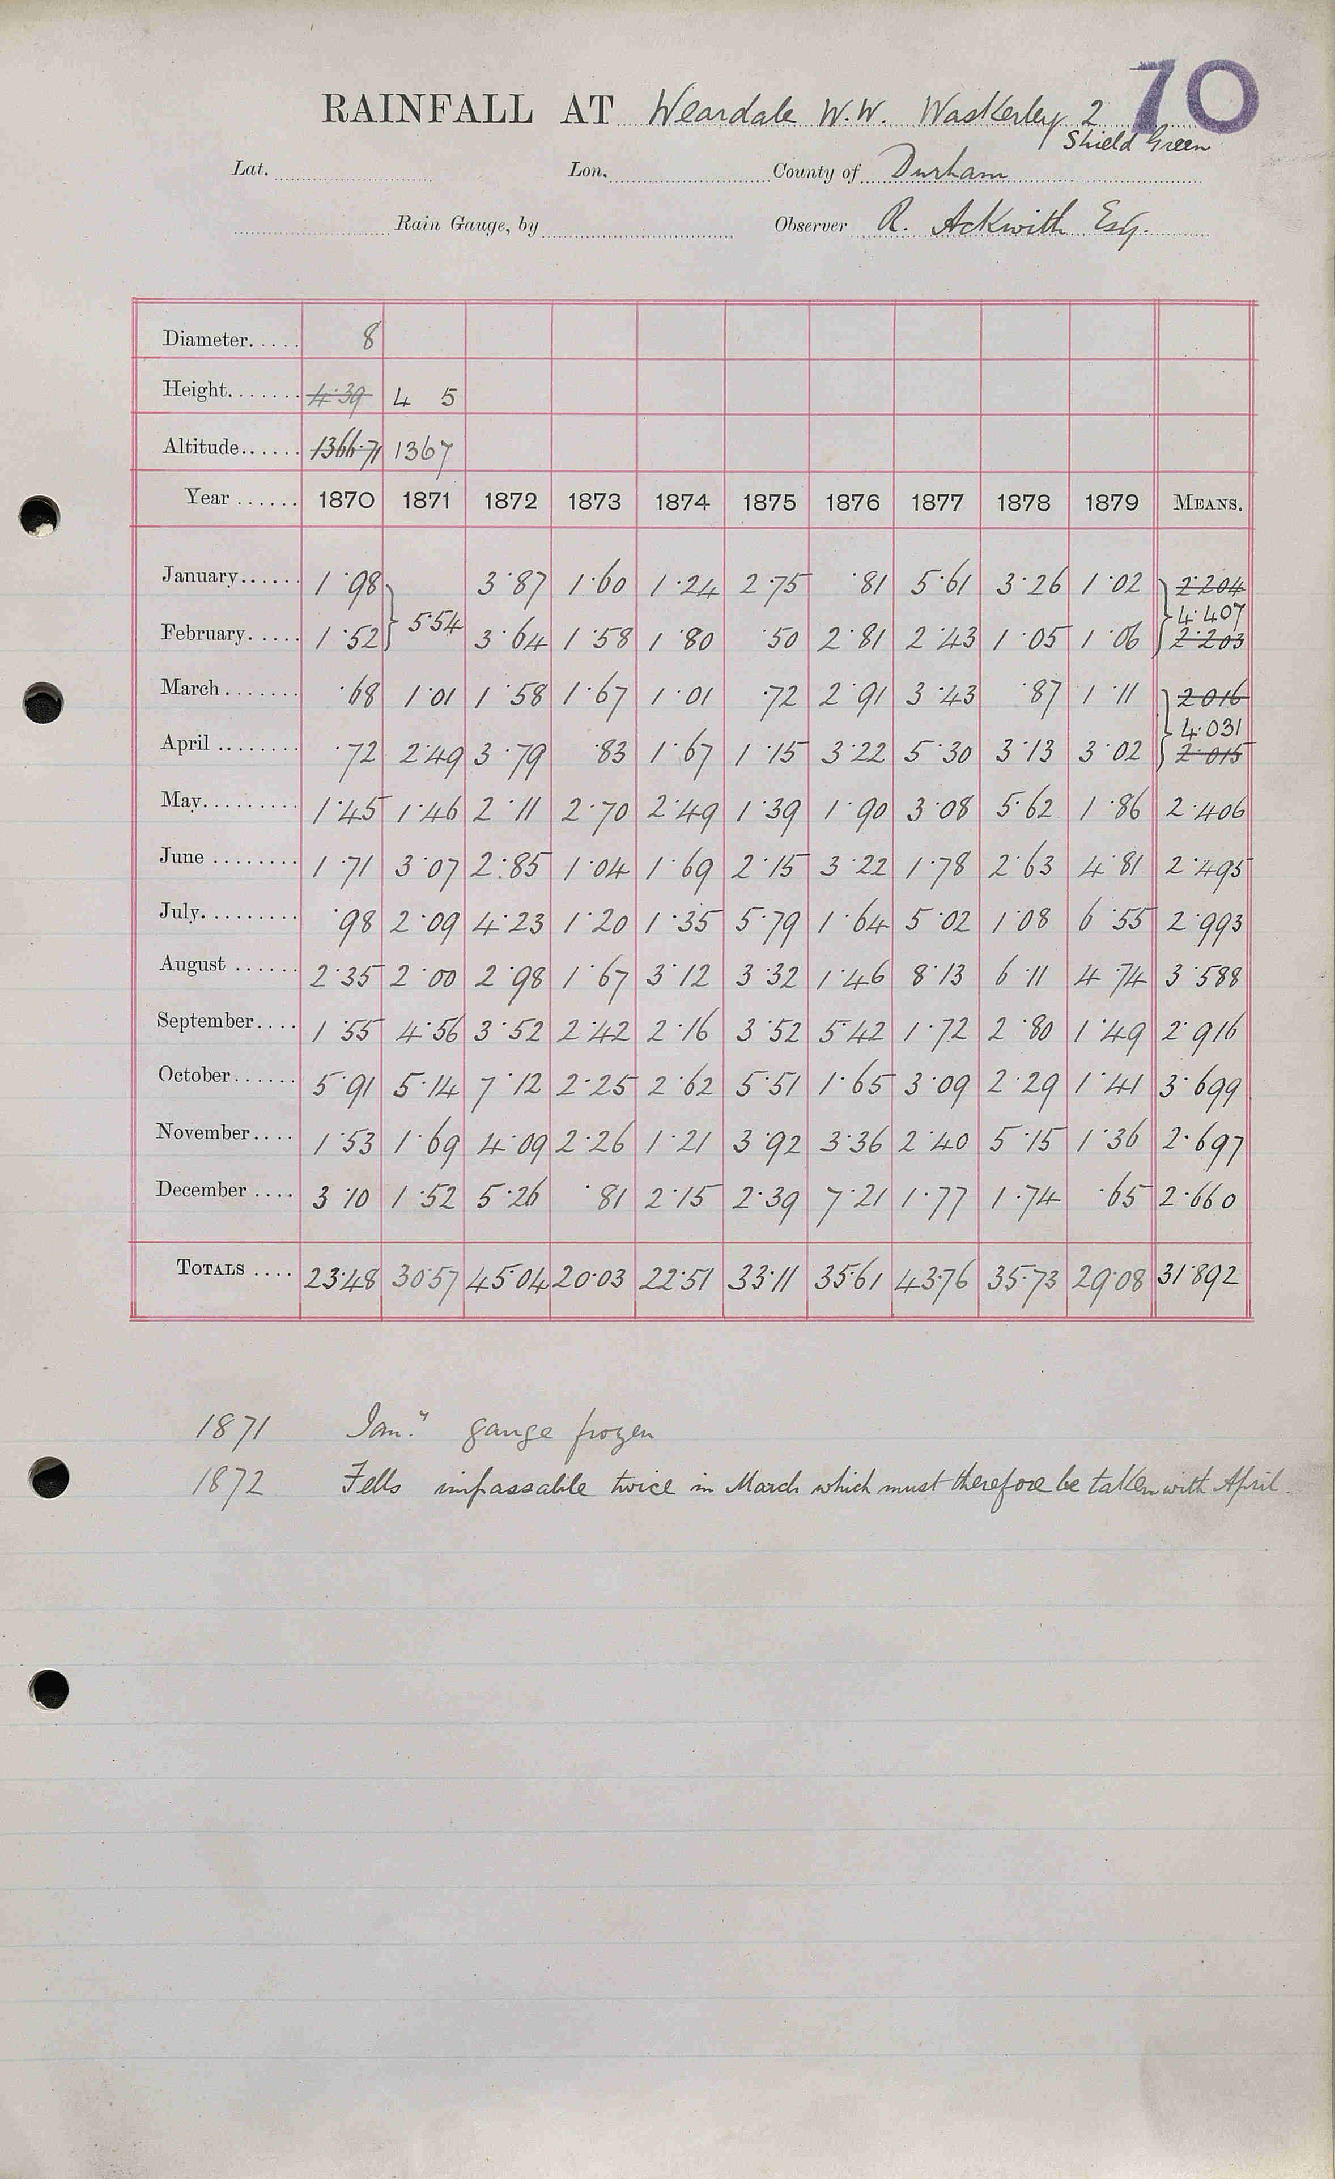 70
RAINFALL AT Weardale W.W. Waskerley 2
Shield Green
Lat. Lon. County of Durham
Rain Gauge, by Observer R. Ackwith Esq.
Diameter..... 8
Height....... 4·39 4 5
Altitude...... 1366·71 1367
Year ...... 1870 1871 1872 1873 1874 1875 1876 1877 1878 1879 MEANS.
January...... 1·98 3·87 1·60 1·24 2·75 ·81 5·61 3·26 1·02 2·204
5·54 4·407
February..... 1·52 3·64 1·58 1·80 ·50 2·81 2·43 1·05 1·06 2·203
March ....... ·68 1·01 1·58 1·67 1·01 ·72 2·91 3·43 ·87 1·11 2·016
4·031
April ........ ·72 2·49 3·79 ·83 1·67 1·15 3·22 5·30 3·13 3·02 2·015
May......... 1·45 1·46 2·11 2·70 2·49 1·39 1·90 3·08 5·62 1·86 2·406
June ........ 1·71 3·07 2·85 1·04 1·69 2·15 3·22 1·78 2·63 4·81 2·495
July......... ·98 2·09 4·23 1·20 1·35 5·79 1·64 5·02 1·08 6·55 2·993
August ...... 2·35 2·00 2·98 1·67 3·12 3·32 1·46 8·13 6·11 4·74 3·588
September.... 1·55 4·56 3·52 2·42 2·16 3·52 5·42 1·72 2·80 1·49 2·916
October...... 5·91 5·14 7·12 2·25 2·62 5·51 1·65 3·09 2·29 1·41 3·699
November.... 1·53 1·69 4·09 2·26 1·21 3·92 3·36 2·40 5·15 1·36 2·697
December .... 3·10 1·52 5·26 ·81 2·15 2·39 7·21 1·77 1·74 ·65 2·660
TOTALS .... 23·48 30·57 45·04 20·03 22·51 33·11 35·61 43·76 35·73 29·08 31·892
1871 Jany gauge frozen
1872 Fells impassable twice in March which must therefore be taken with April